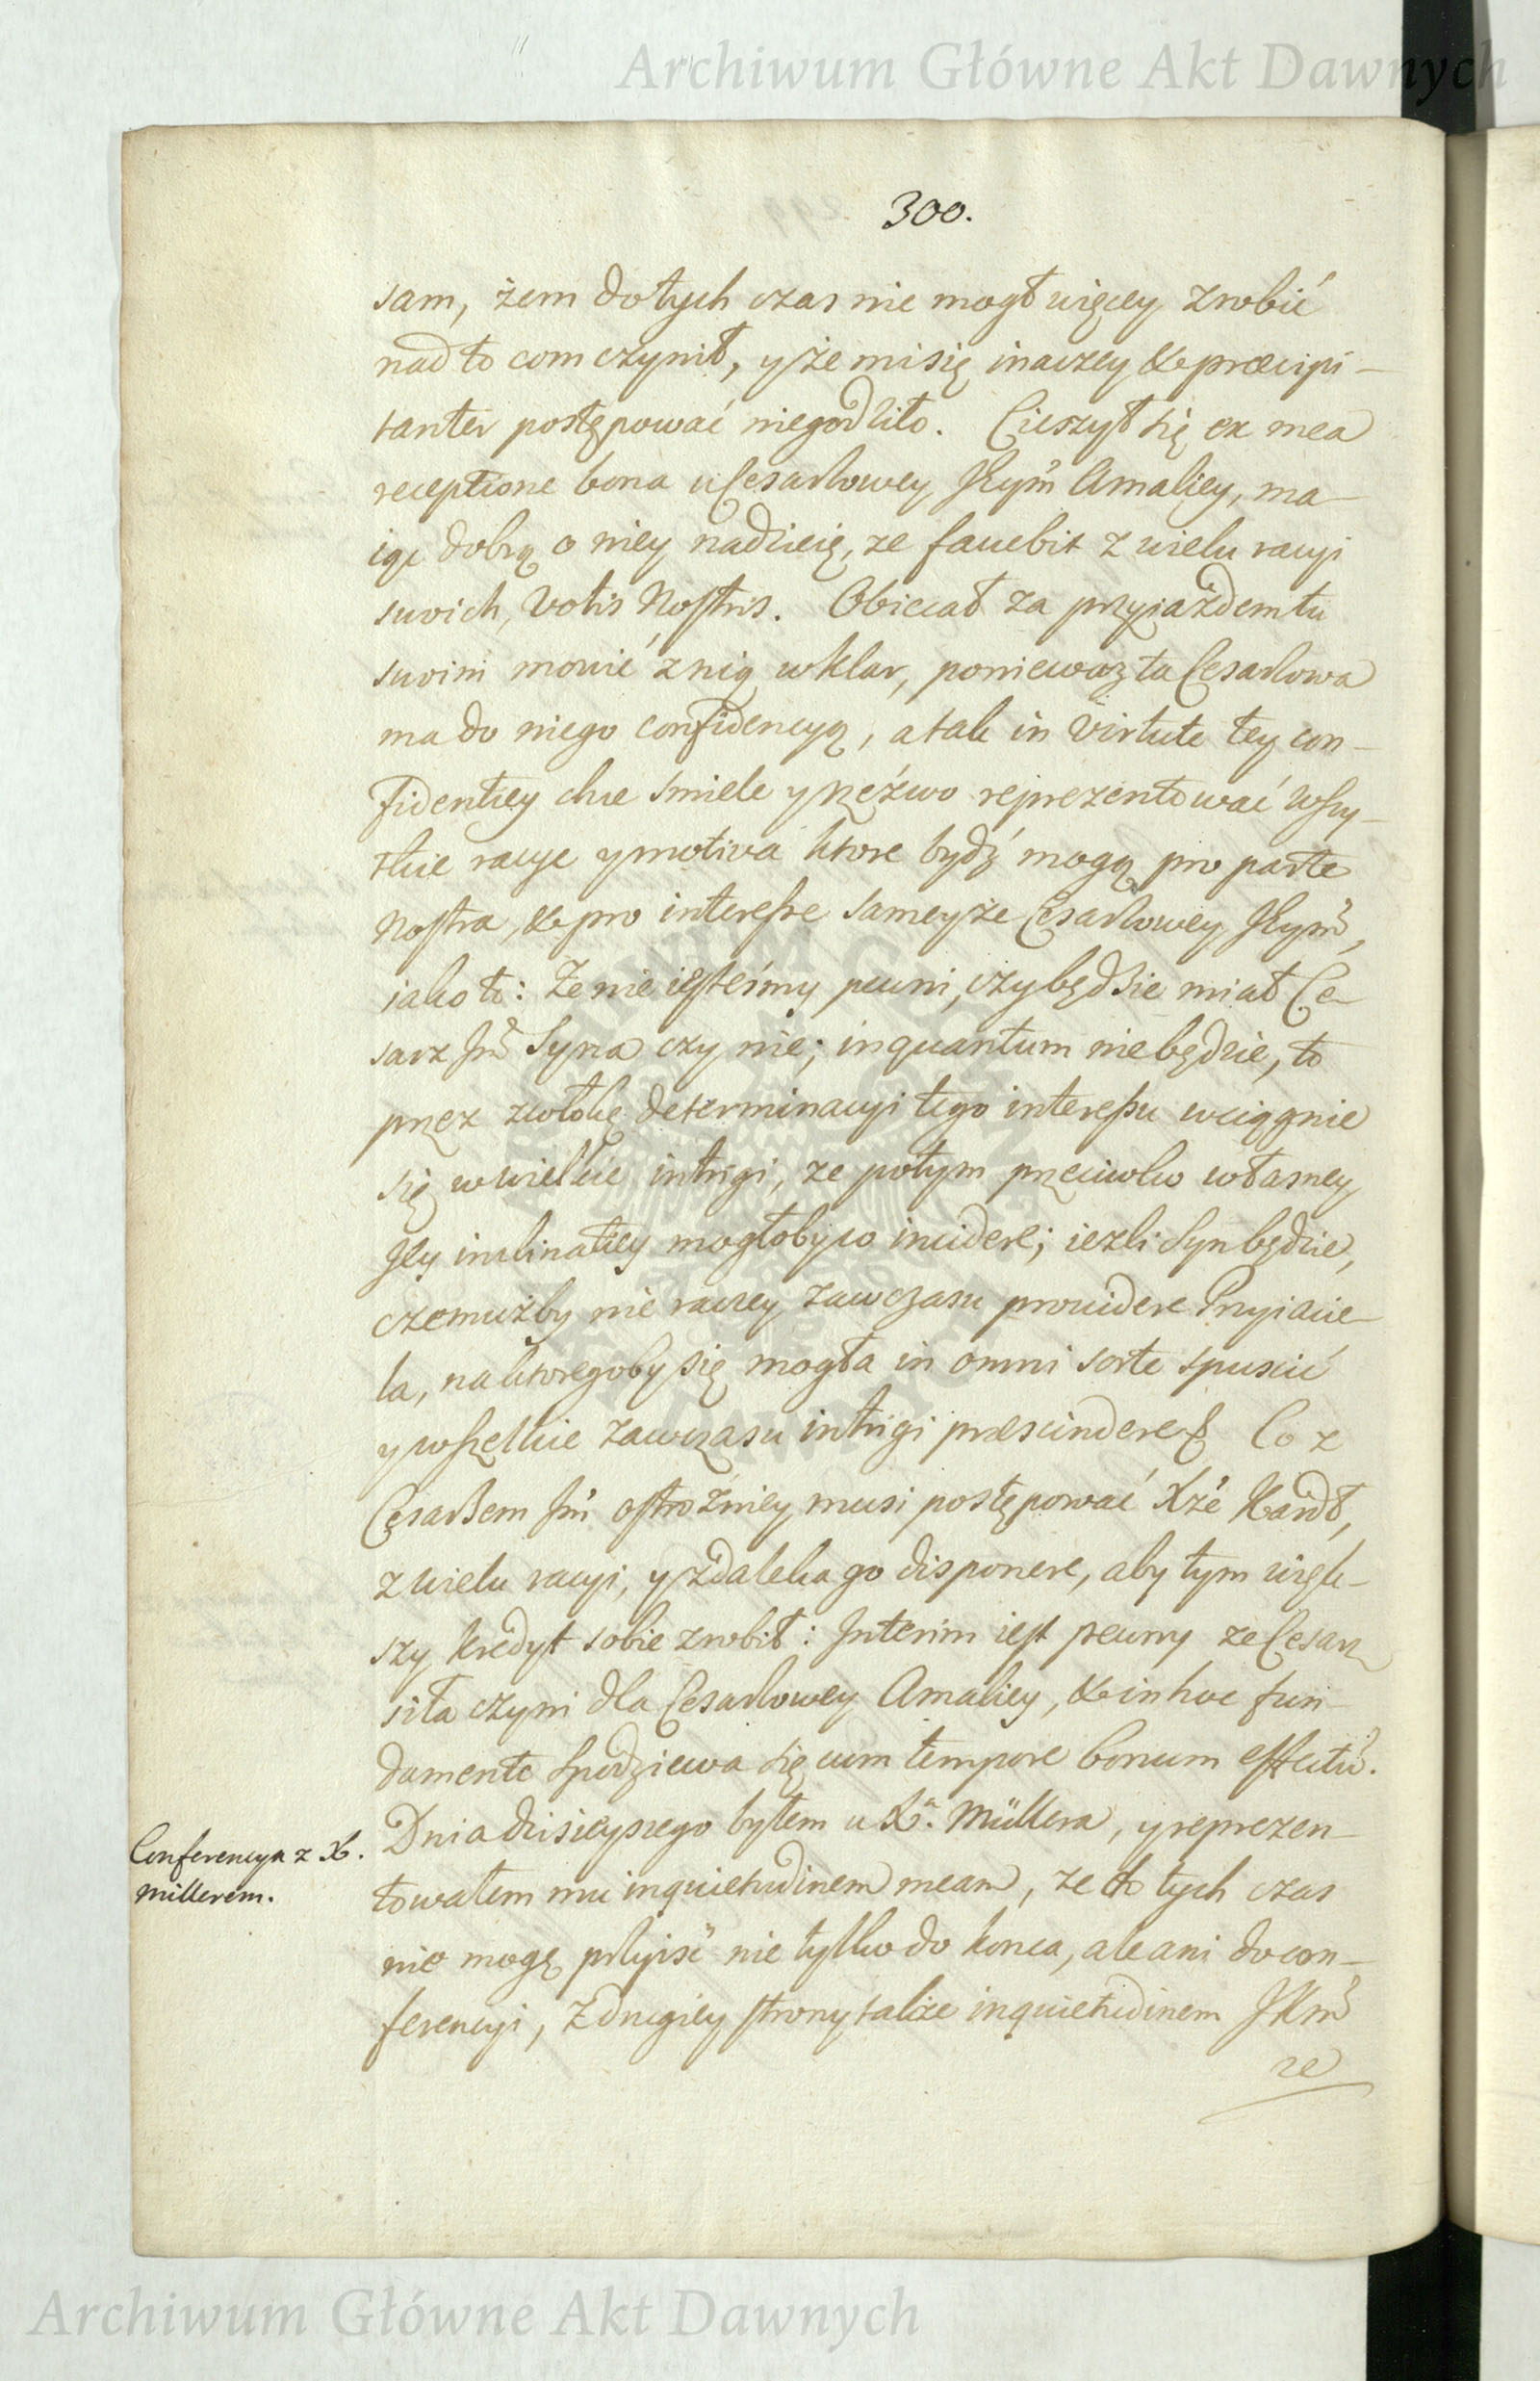 Archiwum Główne Akt Dawnych
300.
sam, żem dotych czas nie mogł więcey zrobić
nad to com czynił, y że mi się inaczey & præcipi-
tanter postępować niegodziło. Cieszył się ex mea
receptione bona u Cesarzowey JKym̃ Amaliey, ma-
iąc dobrą o niey nadzieię, ze favebit z wielu racyi
swoich, Votis Nostris. Obiecał za przyiazdem tu
swoim mowić z nią w klar, poniewaz ta Cesarzowa
ma do niego confidencyą, a tak in virtute tey con-
fidentiey chce smiele y rzeźwo reprezentować wszy-
tkie racye y motiva ktore bydź mogą pro parte
Nostra, & pro interesse sameyże Cesarzowey JKym̃,
iako to: Że nie iesteśmy pewni, czy będzie miał Ce-
sarz Jm̃ Syna czy nie; inquantum nie będzie, to
przez zwłokę determinacyi tego interessu wciągnie
się w wielkie intrigi, ze potym przeciwko własney
Jey inclinatiey mogłoby co incidere; iezli Syn będzie,
czemużby nie raczey zawczasu providere Przyiacie-
la, na ktoregoby się mogła in omni sorte spuscić
y wszelkie zawczasu intrigi præscindere & Co z
Cesarzem Jm̃ ostrożniey musi postępować Xże Kardł,
z wielu racyi, y zdaleka go disponere, aby tym więk-
szy kredyt sobie zrobił: Interim iest pewny ze Cesarz
siła czyni dla Cesarzowey Amaliey, & in hoc fun-
damento spodziewa się cum tempore bonum effectũ.
Conferencya z X.
Millerem.
Dnia dzisieyszego byłem u X. Müllera, y reprezen-
towałem mu inquietudinem meam, ze do tych czas
nie mogę przyisć nie tylko do konca, ale ani do con-
ferencyi, z drugiey strony takze inquietudinem JKm̃
ze
Archiwum Główne Akt Dawnych